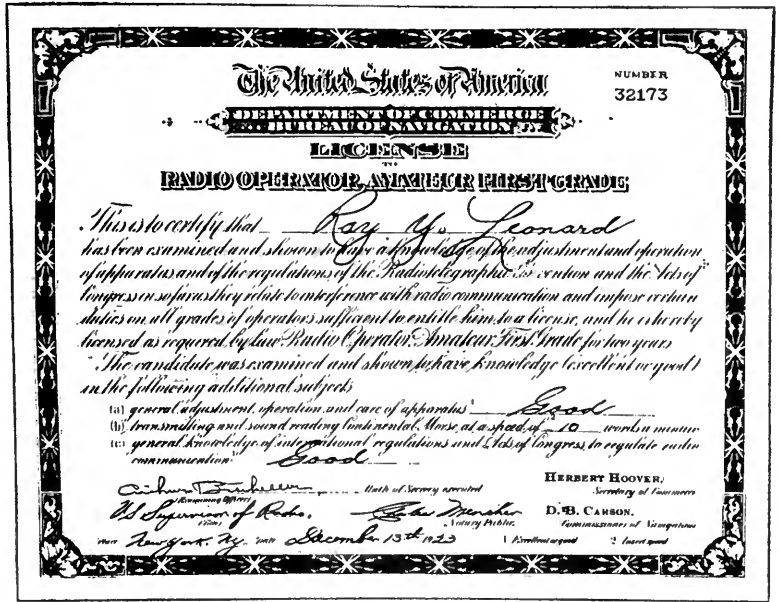 The United States of America
NUMBER
32173
DEPARTMENT OF COMMERCE
BUREAU OF NAVIGATION
LICENSE
TO
RADIO OPERATOR, AMATEUR FIRST GRADE
This is to certify that Ray Y. Leonard
has been examined and shown to have a knowledge of the adjustment and operation
of apparatus and of the regulations of the Radiotelegraphic Convention and the Acts of
Congress in so far as they relate to interference with radio communication and impose certain
duties on all grades of operators sufficient to entitle him to a license, and he is hereby
licensed as required by law Radio Operator, Amateur First Grade for two years
The candidate was examined and shown to have knowledge (excellent or good)
in the following additional subjects
(a) general adjustment, operation, and care of apparatus Good
(b) transmitting and sound reading Continental Morse, at a speed of 10 words a minute
(c) general knowledge of international regulations and Acts of Congress to regulate radio
communication Good
HERBERT HOOVER,
Examining Officer
Oath of Secrecy executed
Secretary of Commerce
US Supervisor of Radio.
Notary Public.
D. B. CARSON.
Commissioner of Navigation
Place New York, Ny. Date December 13th 1923
1 Excellent or good
2 Insert speed